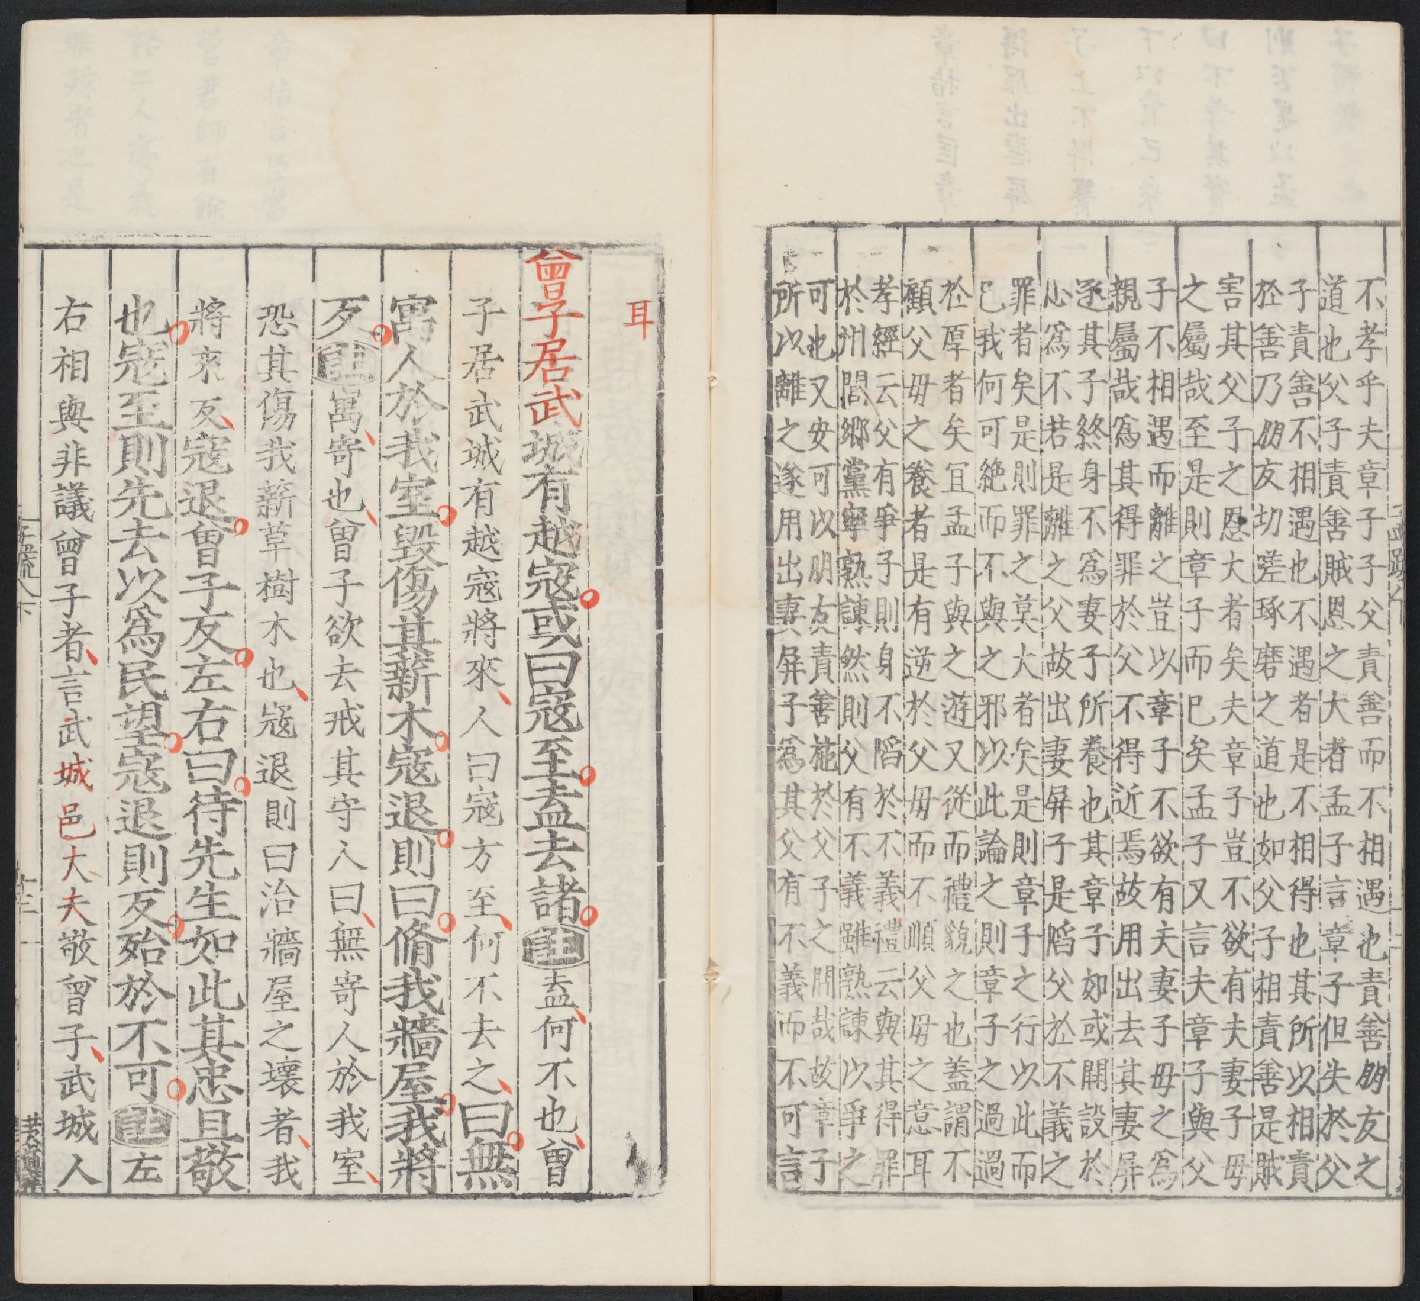 不孝乎夫章子子父責善而不相遇也責善朋友之
道也父子責善賊恩之大者孟子言章子但失於父
子責善不相遇也不遇者是不相得也其所以相責
於善乃朋友切磋琢磨之道也如父子相責善是賊
害其父子之恩大者矣夫章子豈不欲有夫妻子母
之屬哉至是則章子而已矣孟子又言夫章子與父
子不相遇而離之豈以章子不欲有夫妻子母之為
親屬哉為其得罪於父不得近焉故用出去其妻屏
逐其子終身不為妻子所養也其章子如或開設於
心為不若是離之父故出妻屏子是陷父於不義之
罪者矣是則罪之莫大者矣是則章子之行以此而
已我何可絕而不與之邪以此論之則章子之過過
於厚者矣宜孟子與之遊又從而禮貌之也蓋謂不
顧父母之養者是有逆於父母而不順父母之意耳
孝經云父有爭子則身不陷於不義禮云與其得罪
於州閭鄉黨寧熟諫然則父有不義雖熟諫以爭之
可也又安可以朋友責善施於父子之間哉故章子
所以離之遂用出妻屏子為其父有不義而不可言
耳
曾子居武城有越寇或曰寇至盍去諸註盍何不也曾
子居武城有越寇將來人曰寇方至何不去之曰無
寓人於我室毀傷其薪木寇退則曰脩我牆屋我將
反註寓寄也曾子欲去戒其守人曰無寄人於我室
恐其傷我薪草樹木也寇退則曰治牆屋之壞者我
將來反寇退曾子反左右曰待先生如此其忠且敬
也寇至則先去以為民望寇退則反殆於不可註左
右相與非議曾子者言武城邑大夫敬曾子武城人